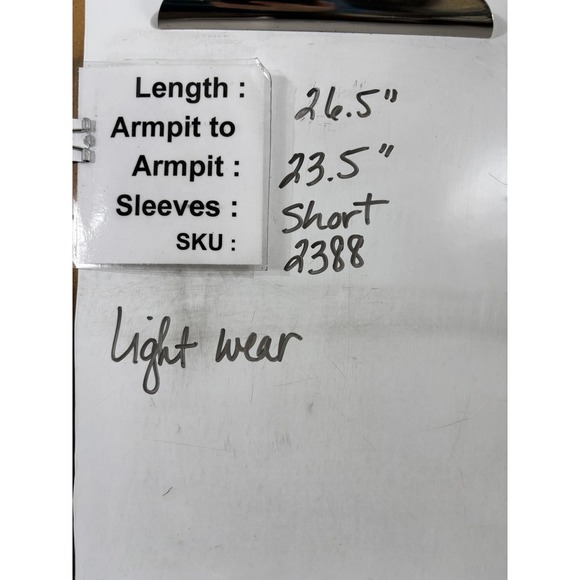 Length : 26.5"
Armpit to
Armpit : 23.5"
Sleeves : Short
SKU : 2388
Light wear